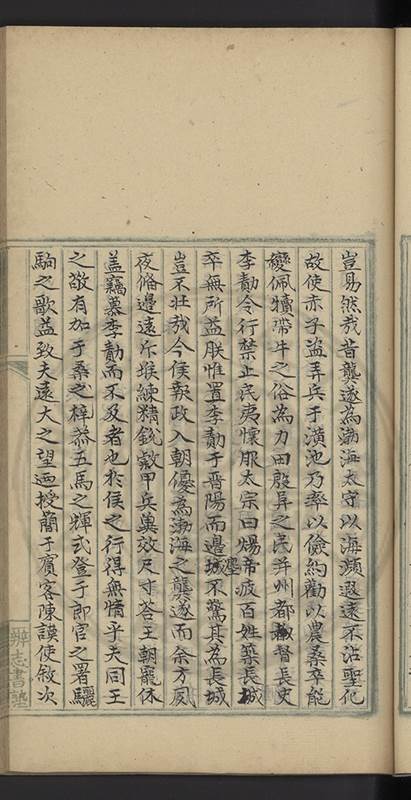 豈易然哉昔龔遂為渤海太守以海瀕遐遠不沾聖化
故使赤子盜弄兵于潢池乃率以儉約勸以農桑卒能
變佩犢帶牛之俗為力田啟異之民并州都督長史
李勣令行禁止民夷懷服太宗曰煬帝疲百姓築長城
卒無所益朕惟置李勣于晉陽而邊塵不驚其為長城
豈不壯哉今侯報政入朝優為渤海之龔遂而余方夙
夜脩邊遠斥堠練精銳敹甲兵冀效尺寸荅王朝寵休
盖竊慕李勣而不及者也於侯之行得無情乎夫同王
之敬有加于桑之梓恭五馬之輝式登于郎官之署驪
駒之歌益致夫遠大之望迺授簡于賓客陳謨使敘次
辨志書塾